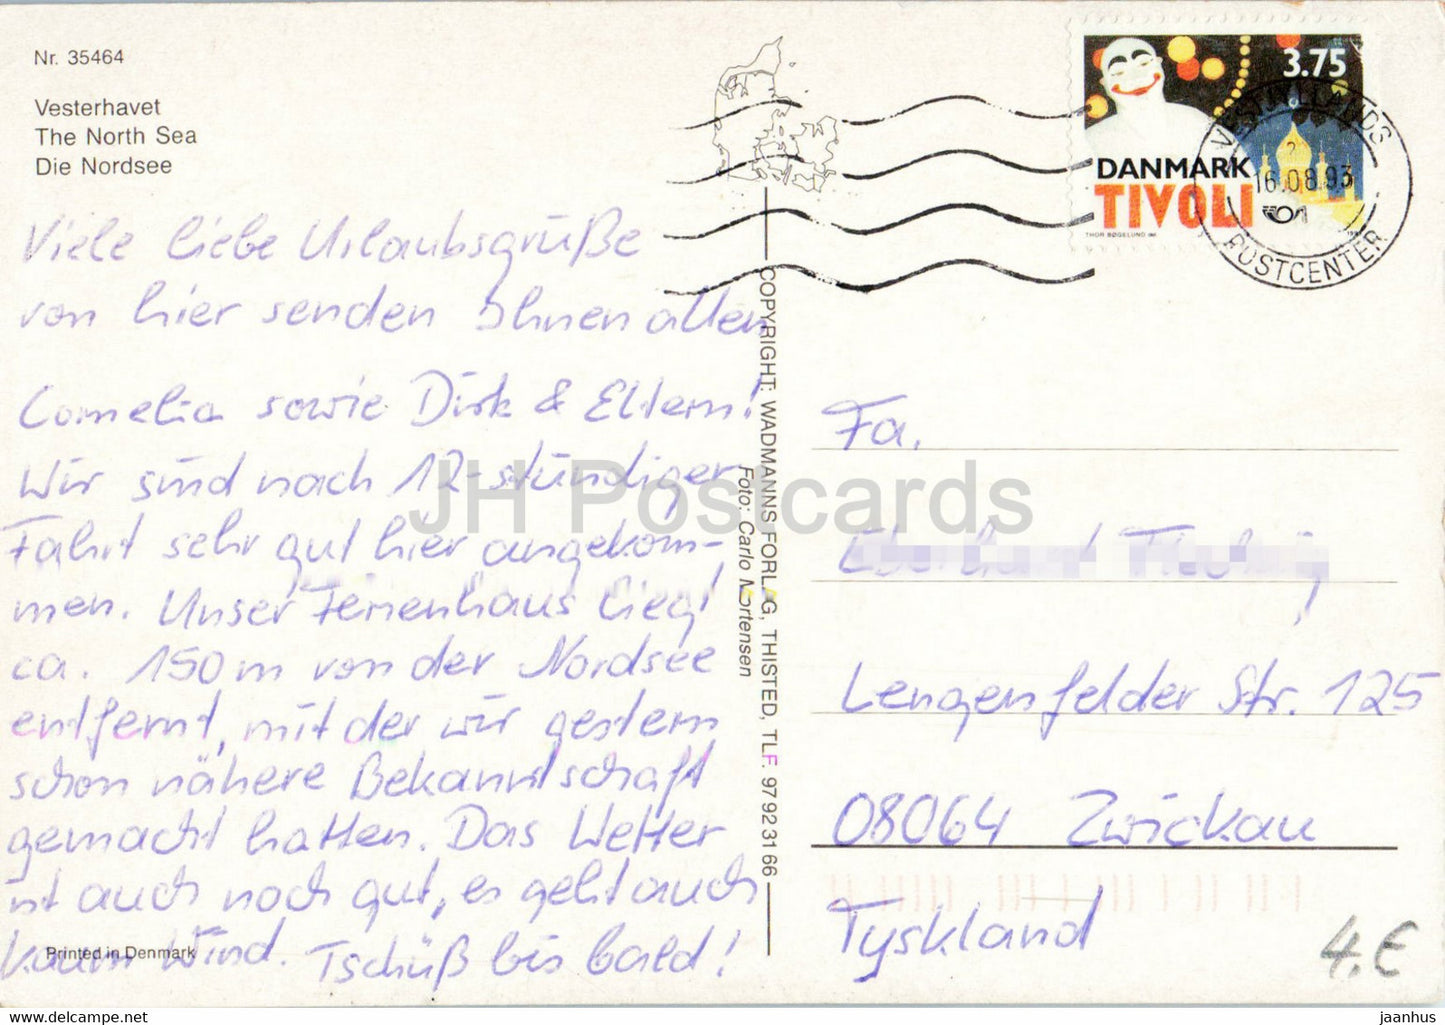 Nr. 35464
Vesterhavet
The North Sea
Die Nordsee
Viele liebe Urlaubsgrüße
von hier senden Ihnen allen
Cornelia sowie Dirk & Eltern!
Wir sind nach 12-stündiger
Fahrt sehr gut hier angekom-
men. Unser Ferienhaus liegt
ca. 150 m von der Nordsee
entfernt, mit der wir gestern
schon nähere Bekanntschaft
gemacht hatten. Das Wetter
ist auch noch gut, es geht auch
kaum Wind. Tschüß bis bald!
Printed in Denmark
COPYRIGHT: WADMANNS FORLAG, THISTED, TLF. 97 92 31 66
Foto: Carlo Mortensen
3.75
DANMARK
TIVOLI
THOR BØGELUND
VESTJYLLANDS
16.08.93
POSTCENTER
Fa.
Lengenfelder Str. 125
08064 Zwickau
Tyskland
4.€
JH Postcards
delcampe.net
jaanhus